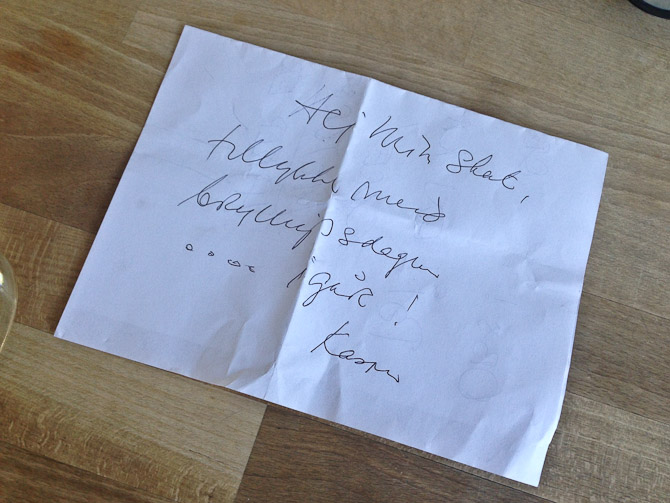 Hej min skat,
tillykke med
bryllupsdagen
.... igår!
Kasper